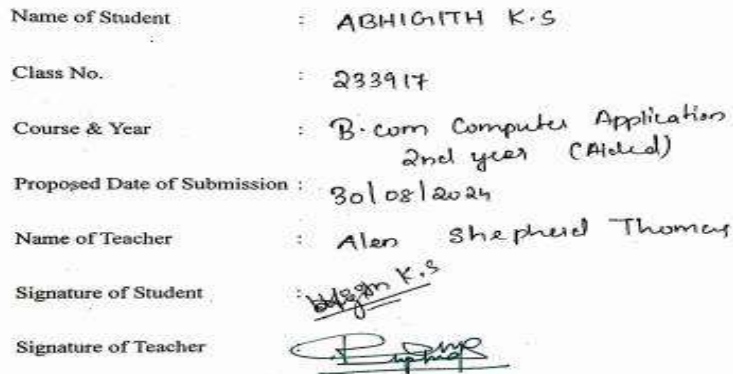 Name of Student : ABHIGITH K.S
Class No. : 233917
Course & Year : B.com Computer Application
2nd year (Aided)
Proposed Date of Submission : 30/08/2024
Name of Teacher : Alen Shepherd Thomas
Signature of Student : K.S
Signature of Teacher :